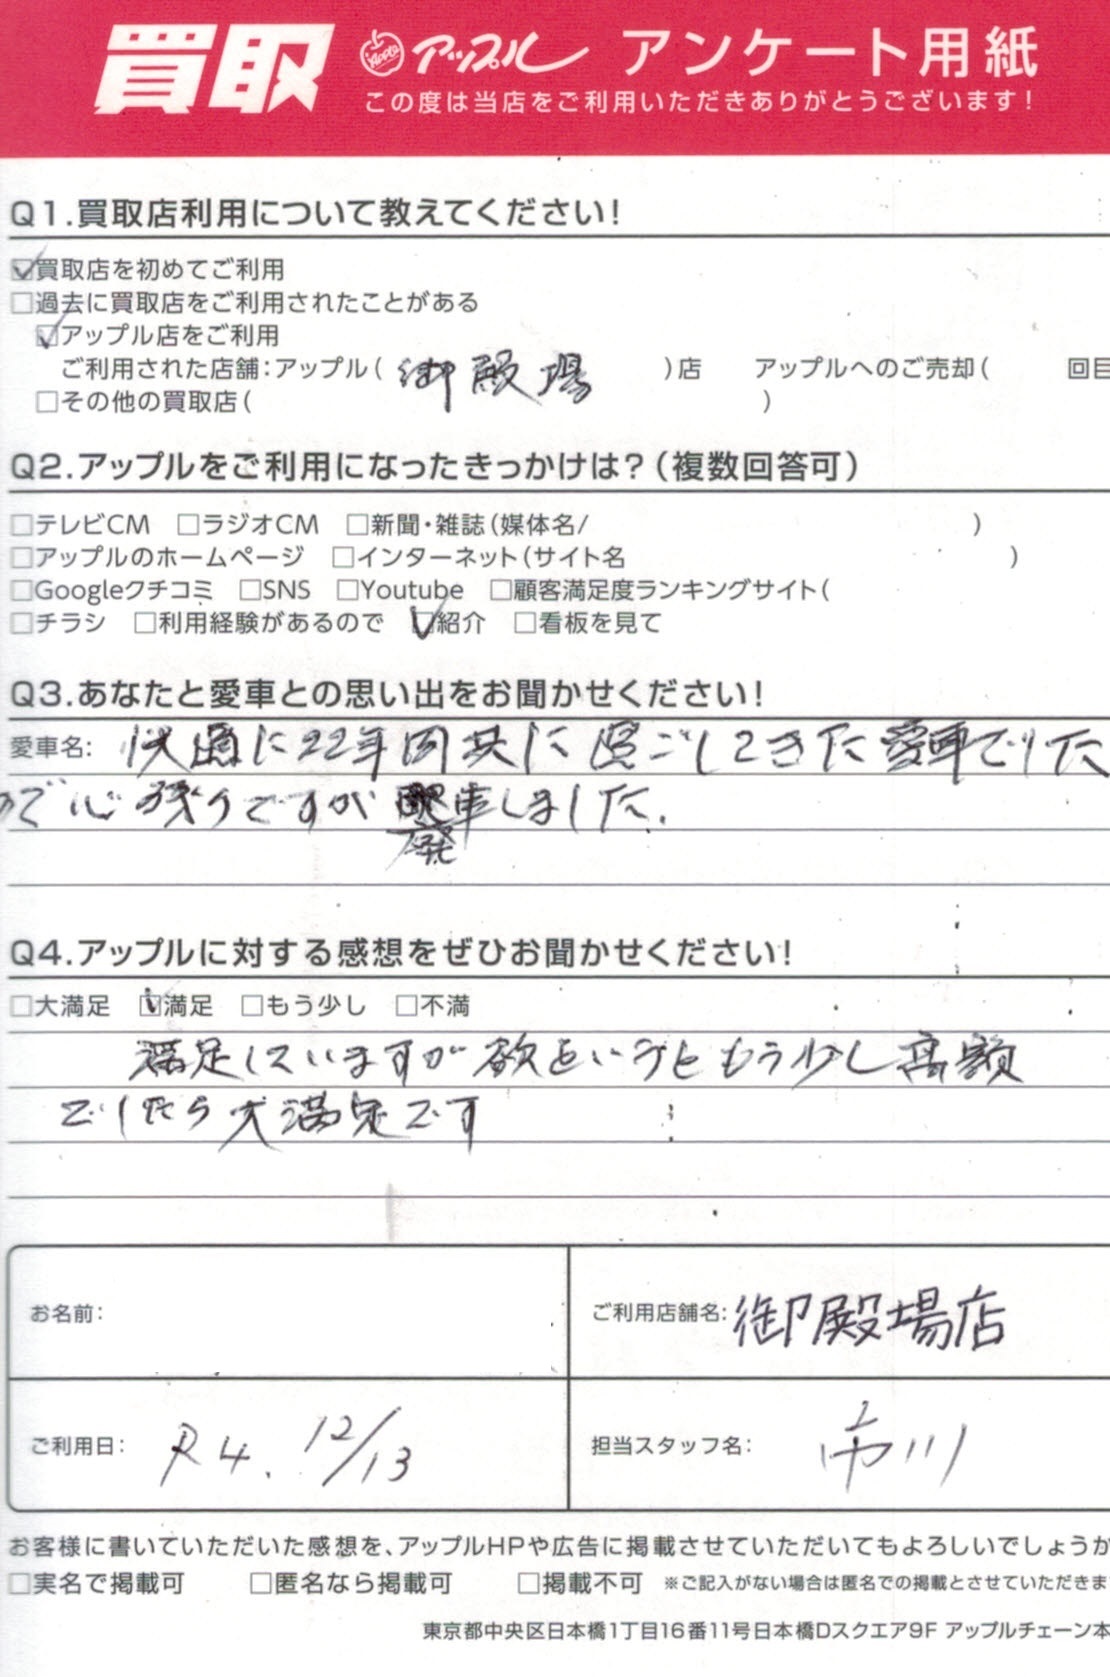 買取 アップル アンケート用紙
この度は当店をご利用いただきありがとうございます!
Q1.買取店利用について教えてください!
☑買取店を初めてご利用
□過去に買取店をご利用されたことがある
☑アップル店をご利用
ご利用された店舗:アップル( 御殿場 )店 アップルへのご売却( 回目
□その他の買取店( )
Q2.アップルをご利用になったきっかけは?(複数回答可)
□テレビCM □ラジオCM □新聞・雑誌(媒体名/ )
□アップルのホームページ □インターネット(サイト名 )
□Googleクチコミ □SNS □Youtube □顧客満足度ランキングサイト(
□チラシ □利用経験があるので ☑紹介 □看板を見て
Q3.あなたと愛車との思い出をお聞かせください!
愛車名: 快適に22年間共に過ごしてきた愛車でした
ので心残りですが廃車しました.
Q4.アップルに対する感想をぜひお聞かせください!
□大満足 ☑満足 □もう少し □不満
満足していますが欲をいうともう少し高額
でしたら大満足です
お名前: ご利用店舗名: 御殿場店
ご利用日: R4. 12/13 担当スタッフ名: 市川
お客様に書いていただいた感想を、アップルHPや広告に掲載させていただいてもよろしいでしょうか
□実名で掲載可 □匿名なら掲載可 □掲載不可 ※ご記入がない場合は匿名での掲載とさせていただきます
東京都中央区日本橋1丁目16番11号日本橋Dスクエア9F アップルチェーン本